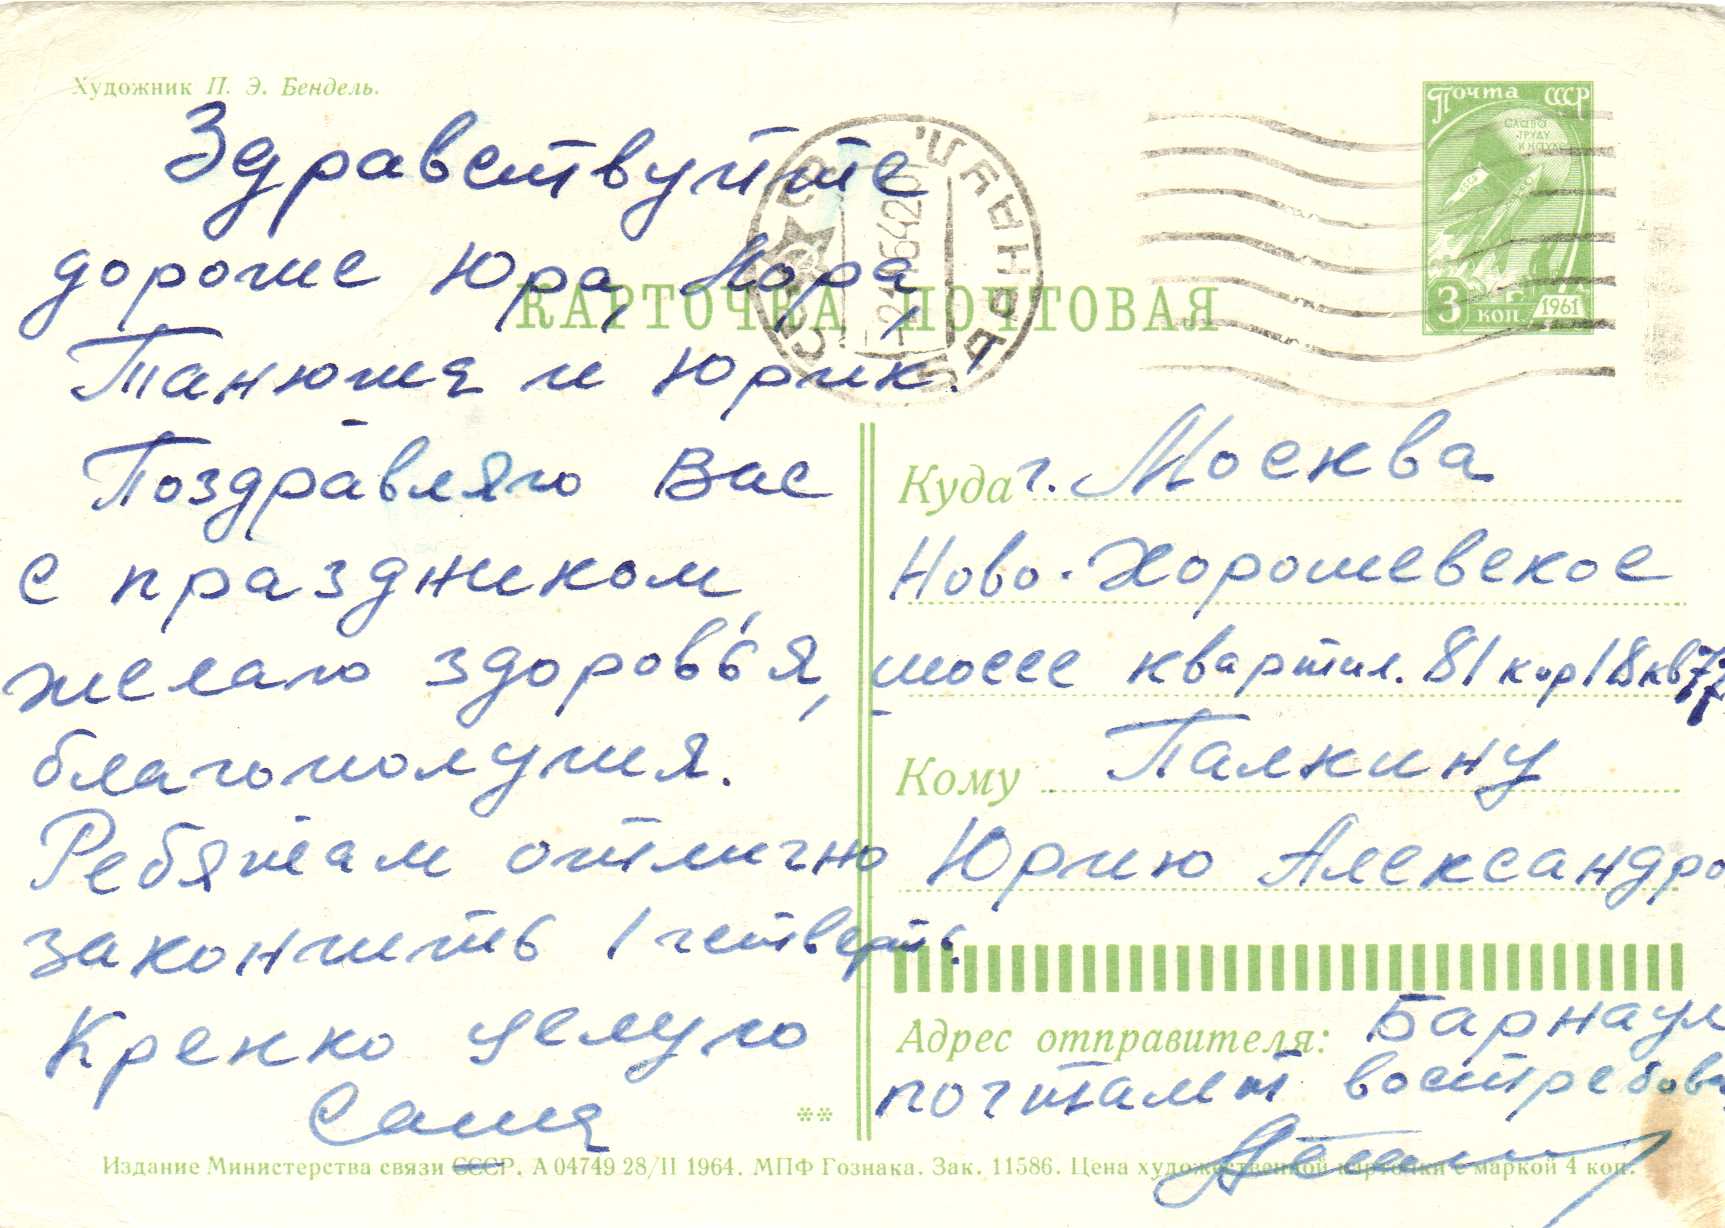 Художник П. Э. Бендель.
Почта СССР
СЛАВА
ТРУДУ
И НАУКЕ
3 коп. 1961
КАРТОЧКА ПОЧТОВАЯ
Здравствуйте
дорогие Юра, Нора,
Танюша и Юрик!
Поздравляю Вас
с праздником,
желаю здоровья,
благополучия.
Ребятам отлично
закончить 1 четверть.
Крепко целую
Саша
Куда г. Москва
Ново-Хорошевское
шоссе квартал. 81 кор 18 кв 77
Кому Палкину
Юрию Александро
Адрес отправителя: Барнаул
почтамт востребова
**
Издание Министерства связи СССР. А 04749 28/II 1964. МПФ Гознака. Зак. 11586. Цена художественной карточки с маркой 4 коп.